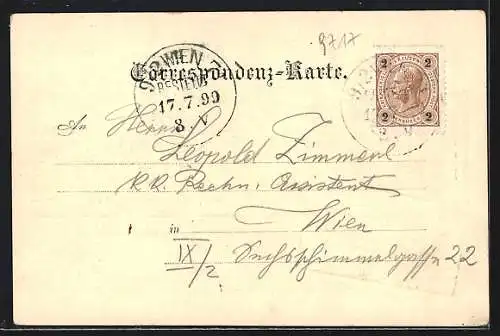 9717
9/2 WIEN
BESTELLT
17.7.99
8.V
2 2
2 2
Correspondenz-Karte.
An Herrn
Leopold Zimmerl
K. K. Rechn. Assistent
in Wien
IX/2 Sechsschimmelgasse 22